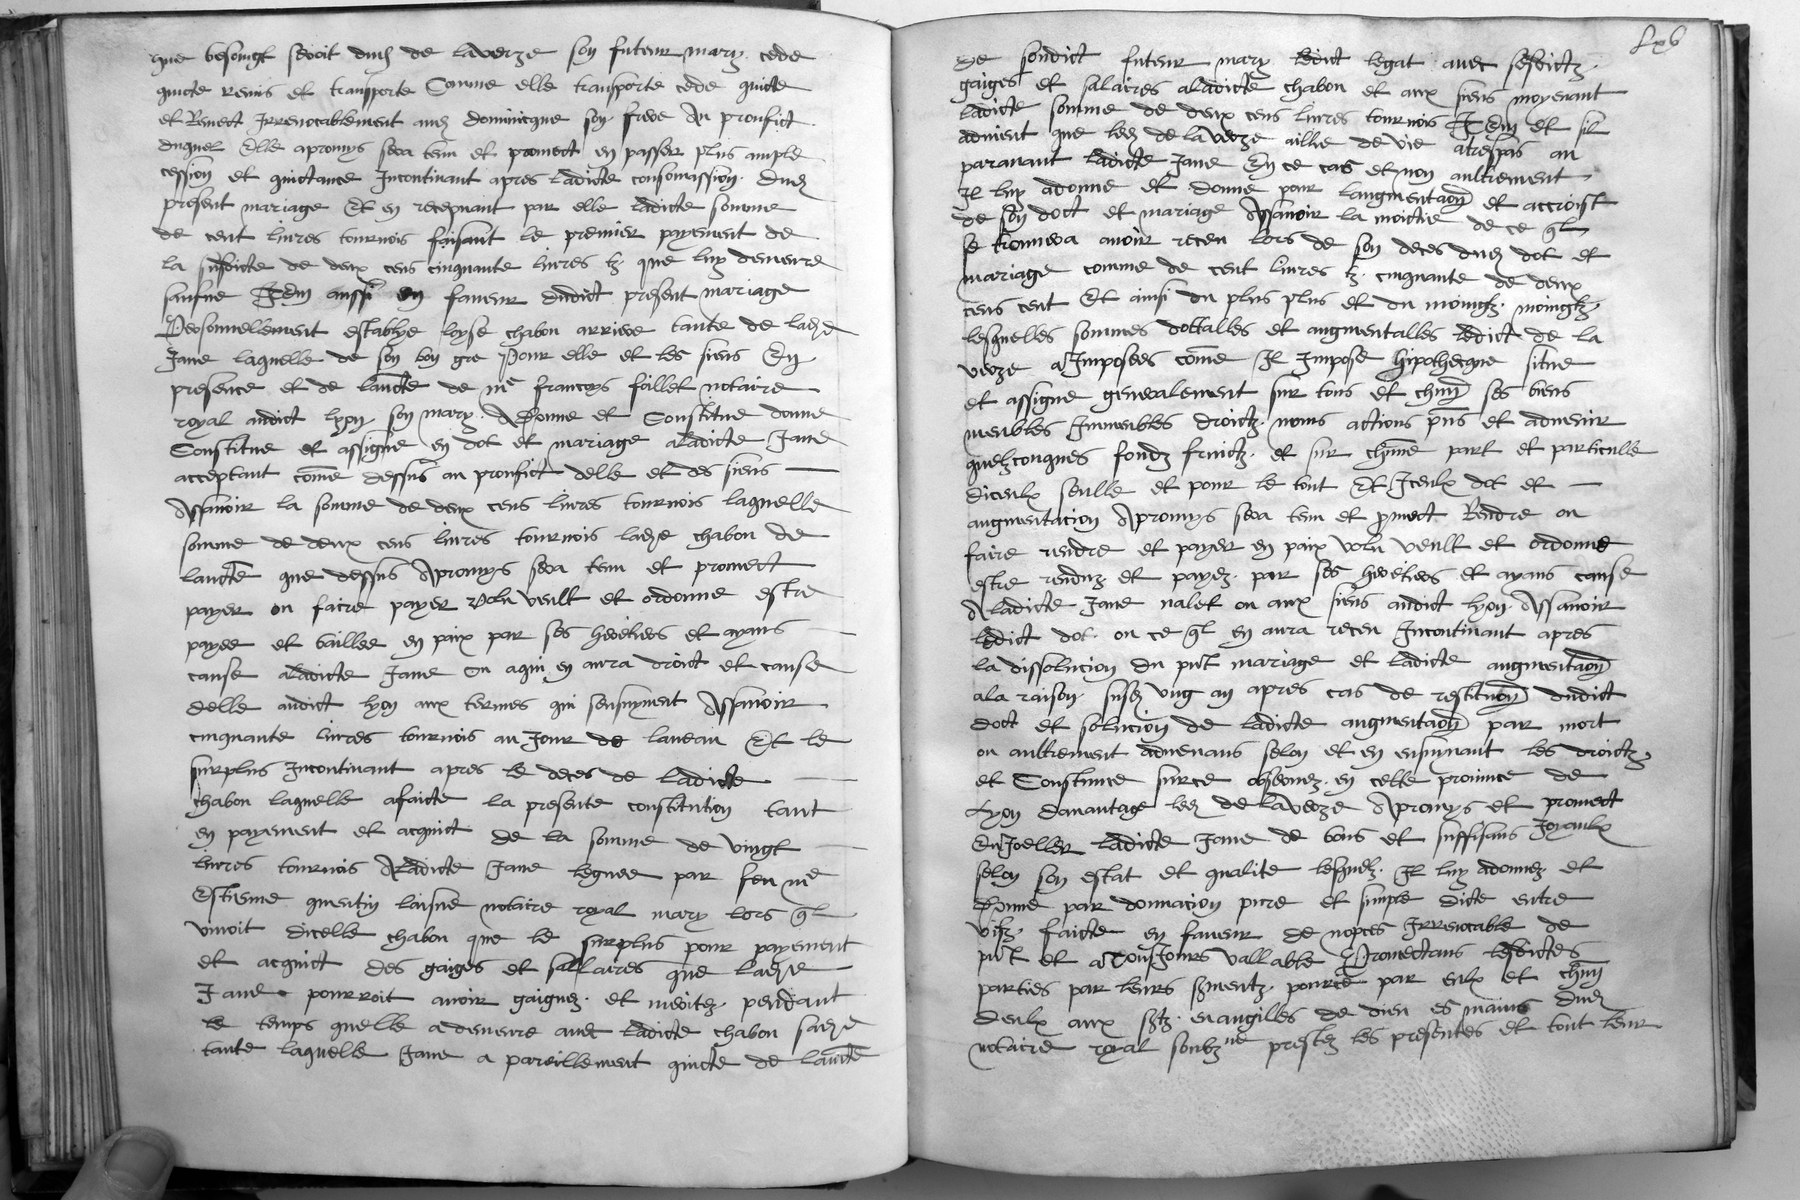 que besoingt seroit dud de laverze son futeur mary cede
quicte remis et transporte Comme elle transporte cede quicte
et Remect Irrevocablement aud dominicque son frere Au prouffict
duquel Elle apromys sera tenu et promect en passer plus ample
cession et quictance Incontinant apres ladicte consommassion dud
present mariage Et en recepvant par elle ladicte somme
de cent livres tournois faisant le premier payement de
la susdicte de deux cens cinquante livres tz que luy demeure
saufve Item aussi en faveur dudict present mariage
Personnellement establye loyse chabon arriere tante de lad
Jane laquelle de son bon gre Pour elle et les siens En
presence et de laucte de me francoys fallet notaire
royal audict lyon son mary Adonne et Constitue donne
Constitue et assigne en dot et mariage aladicte Jane
acceptant come dessus au prouffict delle et des siens
Assavoir la somme de deux cens livres tournois laquelle
somme de deux cens livres tournois lad chabon de
laucte que dessus Apromys sera tenu et promect
payer ou faire payer Volu veult et ordonne estre
payee et baillee en paix par ses heretiers et ayans
cause aladicte Jane ou aqui en aura droict et cause
delle audict lyon aux termes qui sensuyvent Assavoir
cinquante livres tournois au Jour de lan Et le
surplus Incontinant apres le deces de ladicte
chabon laquelle afaicte la presente constitution tant
en payement et acquict de la somme de vingt
livres tournois Aladicte Jane leguee par feu me
Estienne quentin laisne notaire royal mary lors ql
vivoit dicelle chabon que le surplus pour payement
et acquict des gaiges et sallaires que lad
Jane pourroit avoir gaignez et meritez pendant
le temps quelle a demeure avec ladicte chabon sad
tante laquelle Jane a pareillement quicte de laucte
Lxv
de sondict futeur mary ledict legat avec sesdictz
gaiges et salaires aladicte chabon et aux siens moyenant
ladicte somme de deux cens livres tournois Item et sil
advient que led de laverze aille de vie atrespas au
paravant ladicte Jane En ce cas et non aultrement
Il luy adonne et donne pour laugmentaon et accroist
de son doct et mariage Assavoir la moictie de ce ql
se trouvera avoir receu lors de son deces dud dot et
mariage comme de cent livres tz cinquante de deux
cens cent Et ainsi du plus plus et du moingtz moingtz
lesquelles sommes dottalles et augmentalles ledict de la
verze a Imposees come Il Impose hipothecque situe
et assigne generalement sur tous et chun ses biens
meubles Immeubles droictz noms actions pns et advenir
quelzconques fondz fruictz et sur chune part et particulle
diceulx seulle et pour le tout Et Iceulx dot et
augmentacion Apromys sera tenu et pmect Rendre ou
faire rendre et payer en paix volu veult et ordonne
estre renduz et payez par ses heretiers et ayans cause
Aladicte Jane valet ou aux siens audict lyon Assavoir
ledict dot ou ce ql en aura receu Incontinant apres
la dissolucion du pnt mariage et ladicte augmentaon
ala raison susd ung an apres cas de restituon dudict
doct et solucion de ladicte augmentaon par mort
ou aultrement advenans selon et en ensuyvant les droictz
et Constume surce observez en celle province de
Lyon davantage led de laverze Apromys et promect
EnJoeller ladicte Jane de bons et suffisans Joyaulx
selon son estat et qualite lesquelz Il luy adonnez et
Donne par donnacion pure et simple dicte entre
vifz faicte en faveur de nopces Irrevocable de
pnt et a TousJours vallable Promectans lesdictes
parties par leurs smentz pource par eulx et chun
deulx aux stz evangilles de dieu es mains dud
notaire royal soubzne prestez les presentes et tout leur